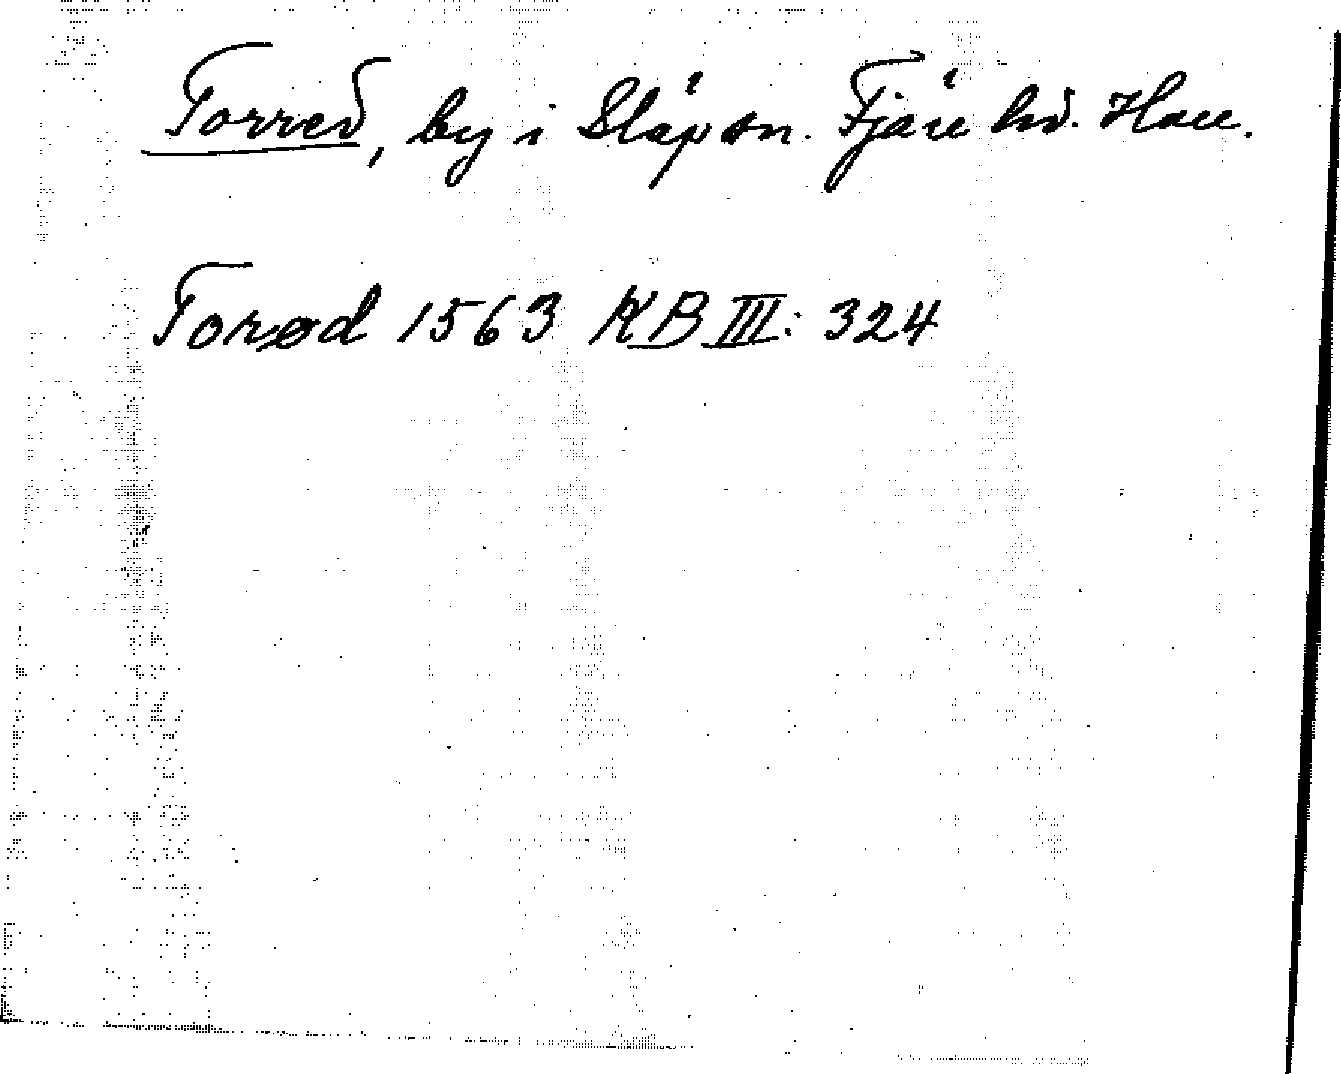 Torred, by i Släp sn. Fjäre hd. Hall.
Torød 1563 KB III: 324